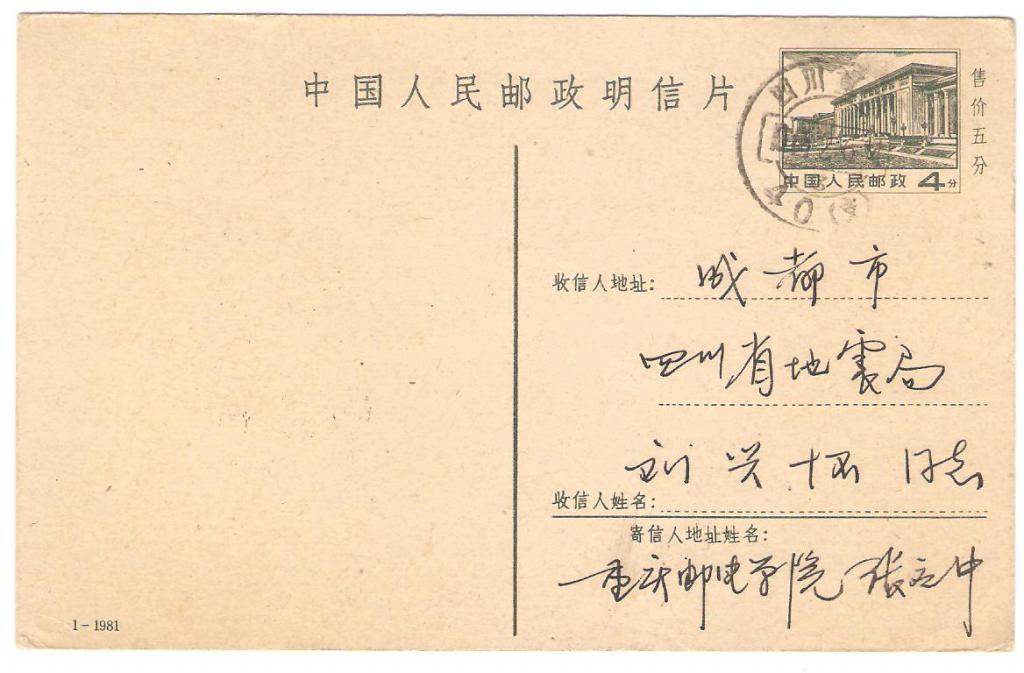 中国人民邮政明信片
四川
40 (支)
中国人民邮政 4分
售价五分
收信人地址: 成都市
四川省地震局
刘兴怀 同志
收信人姓名:
寄信人地址姓名:
重庆邮电学院 张立中
1-1981